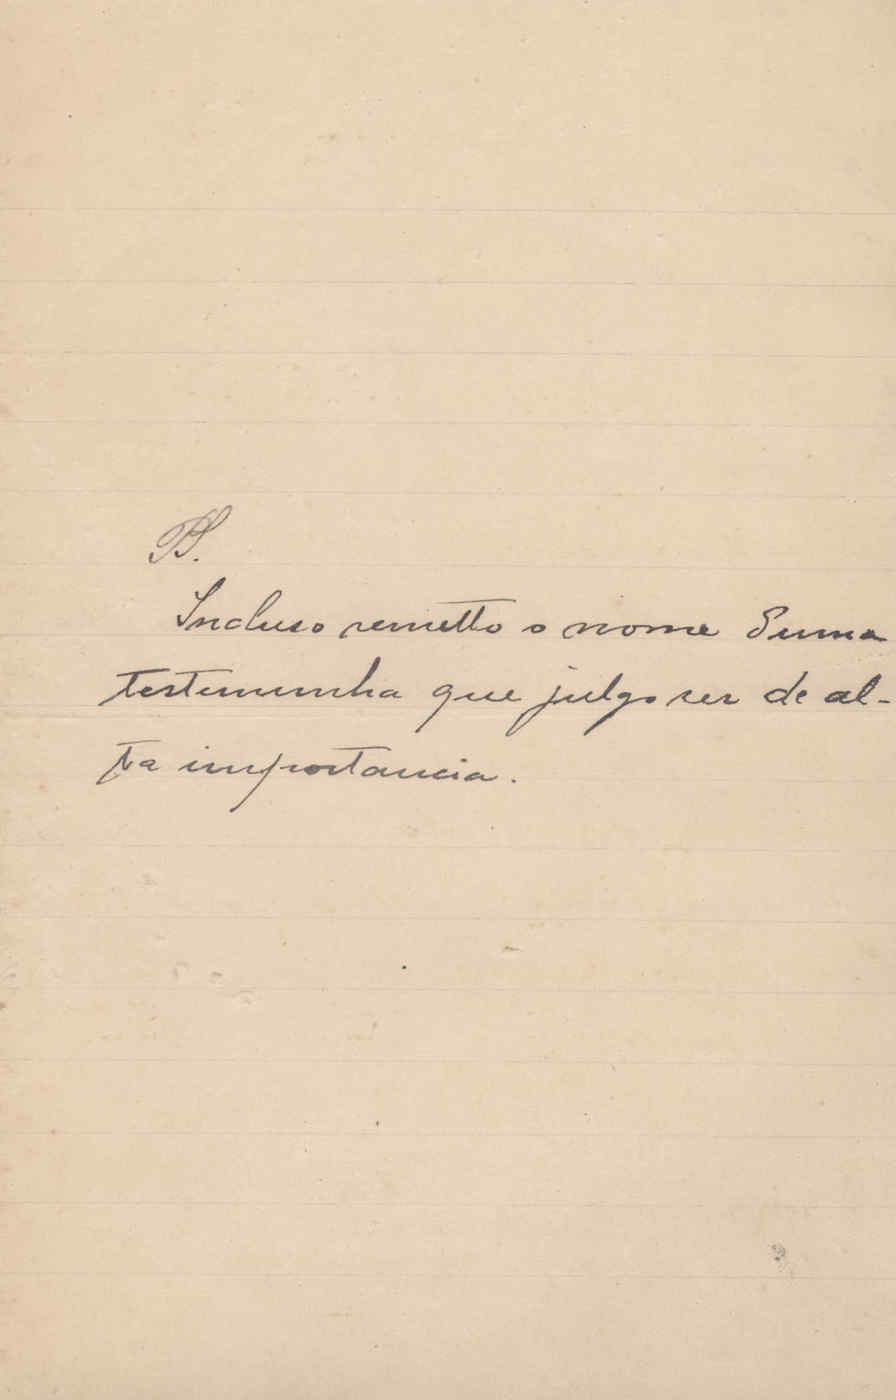 Incluso remetto o nome d'uma
testemunha que julgo ser de al-
ta importancia.